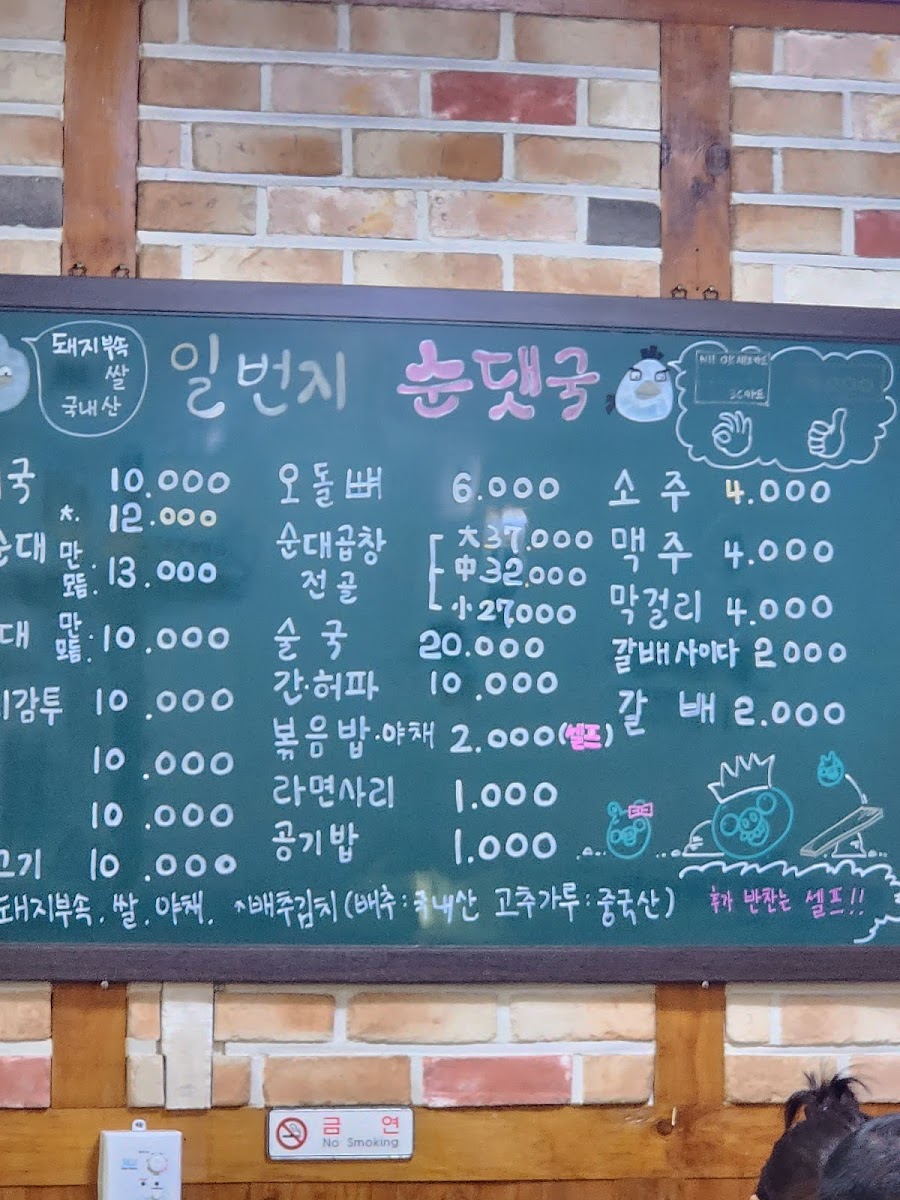 돼지부속
쌀
국내산
일번지 순댓국
국 10.000
大. 12.000
순대 만. 모듬. 13.000
대 만. 모듬. 10.000
감투 10.000
10.000
10.000
고기 10.000
오돌뼈 6.000
순대곱창 전골
大 37.000
中 32.000
小 27.000
술국 20.000
간·허파 10.000
볶음밥·야채 2.000(셀프)
라면사리 1.000
공기밥 1.000
소주 4.000
맥주 4.000
막걸리 4.000
갈배사이다 2000
갈배 2.000
돼지부속. 쌀. 야채. 배추김치(배추:국내산 고추가루:중국산)
추가 반찬는 셀프!!
금연
No Smoking